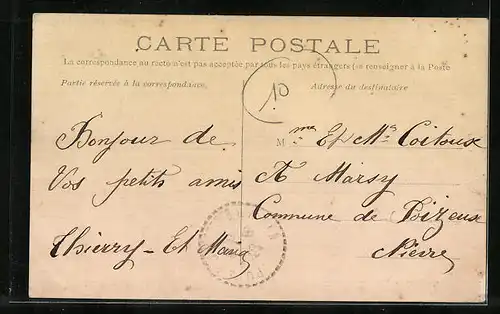 CARTE POSTALE
La correspondance au recto n'est pas acceptée par tous les pays étrangers (se renseigner à la Poste
Partie réservée à la correspondance.
Adresse du destinataire
10
Bonjour de
Vos petits amis
Thierry - Et Maria
M me Et Mr Coitoux
A Marsy
Commune de
Nievre